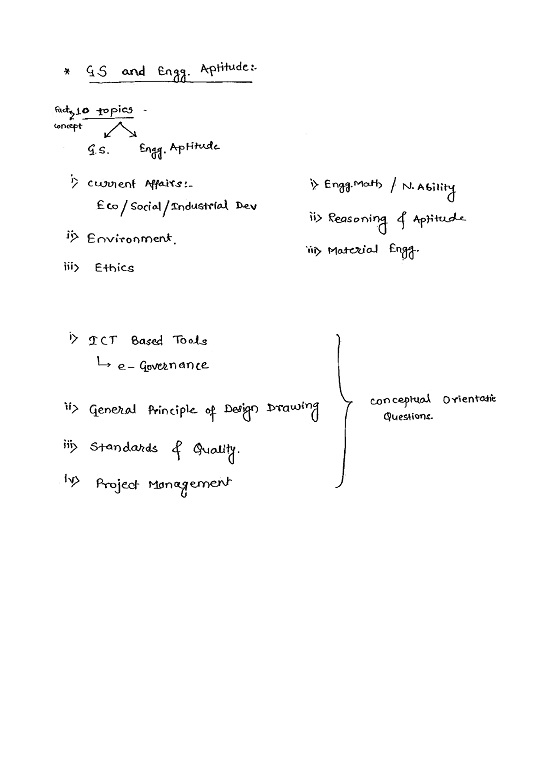 * G.S and Engg. Aptitude:-
Fact, 10 topics -
concept
G.S. Engg. Aptitude
i> Current Affairs:-
Eco/Social/Industrial Dev
ii> Environment.
iii> Ethics
i> Engg. Math / N. Ability
ii> Reasoning & Aptitude
iii> Material Engg.
i> ICT Based Tools
↳ e-Governance
ii> General Principle of Design Drawing
iii> Standards & Quality.
iv> Project Management
Conceptual Orientatic
Questions.